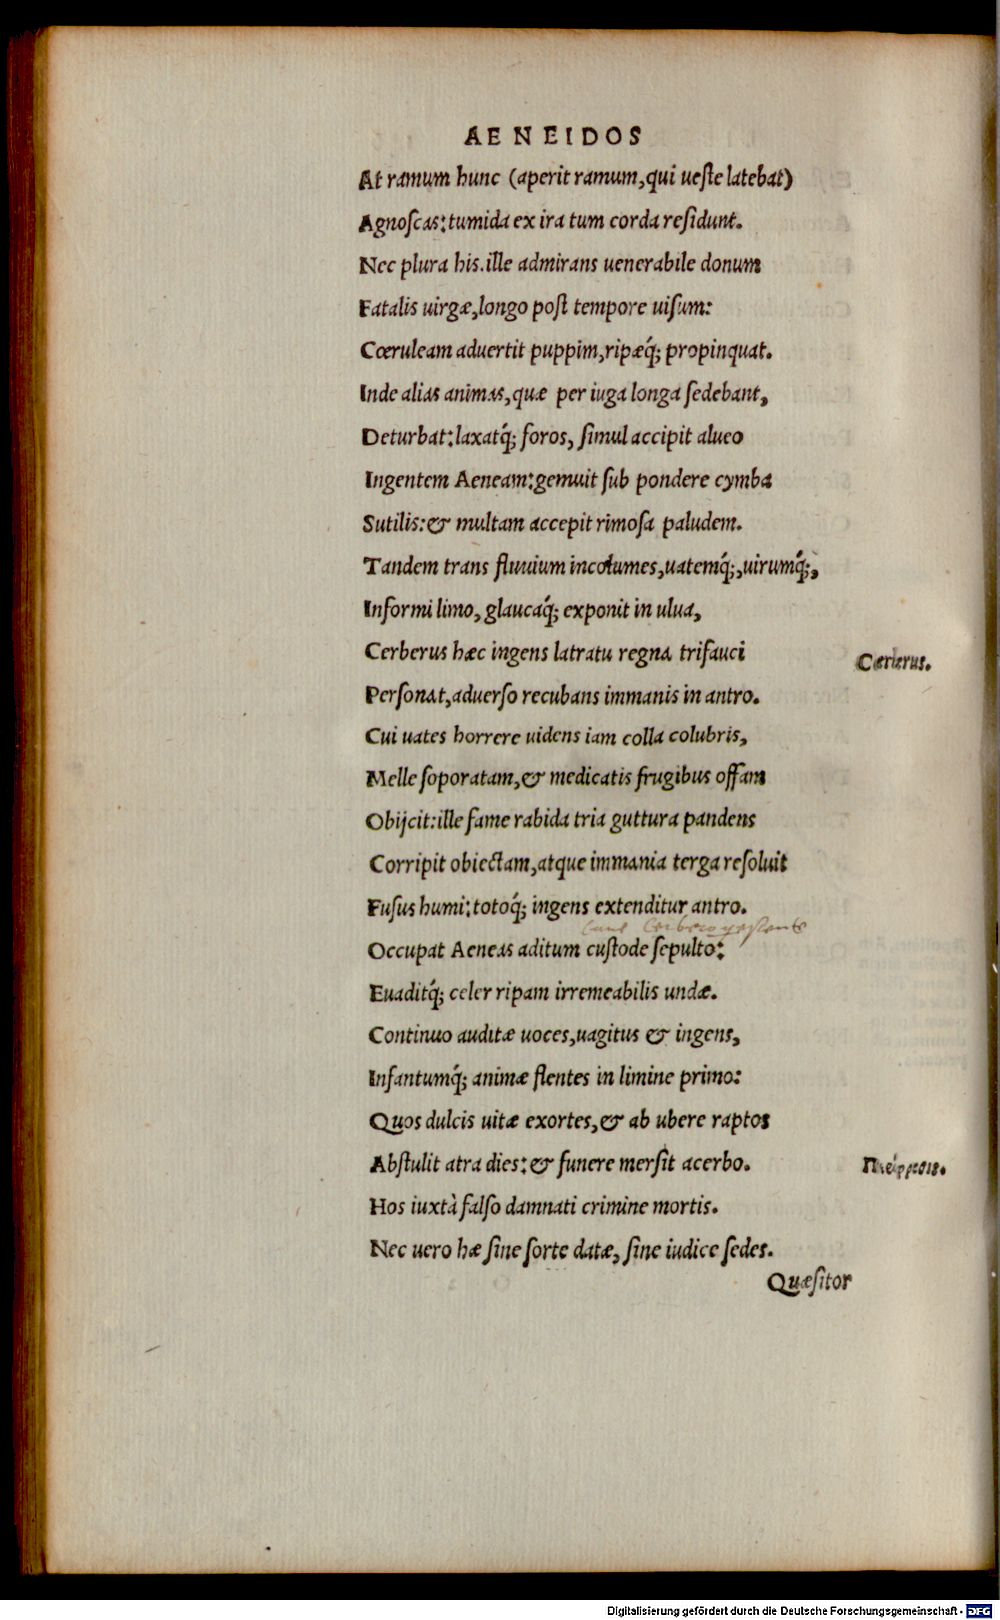 AENEIDOS
At ramum hunc (aperit ramum, qui ueste latebat)
Agnoscas: tumida ex ira tum corda residunt.
Nec plura his. ille admirans uenerabile donum
Fatalis uirgæ, longo post tempore uisum:
Cœruleam aduertit puppim, ripæq́; propinquat.
Inde alias animas, quæ per iuga longa sedebant,
Deturbat: laxatq́; foros, simul accipit alueo
Ingentem Aeneam: gemuit sub pondere cymba
Sutilis: & multam accepit rimosa paludem.
Tandem trans fluuium incolumes, uatemq́;, uirumq́;,
Informi limo, glaucaq́; exponit in ulua,
Cerberus hæc ingens latratu regna trifauci
Cerberus.
Personat, aduerso recubans immanis in antro.
Cui uates horrere uidens iam colla colubris,
Melle soporatam, & medicatis frugibus offam
Obijcit: ille fame rabida tria guttura pandens
Corripit obiectam, atque immania terga resoluit
Fusus humi: totoq́; ingens extenditur antro.
Occupat Aeneas aditum custode sepulto:
Euaditq́; celer ripam irremeabilis undæ.
Continuo auditæ uoces, uagitus & ingens,
Infantumq́; animæ flentes in limine primo:
Quos dulcis uitæ exortes, & ab ubere raptos
Abstulit atra dies: & funere mersit acerbo.
Hos iuxtà falso damnati crimine mortis.
Nec uero hæ sine sorte datæ, sine iudice sedes.
Quæsitor
Digitalisierung gefördert durch die Deutsche Forschungsgemeinschaft - DFG